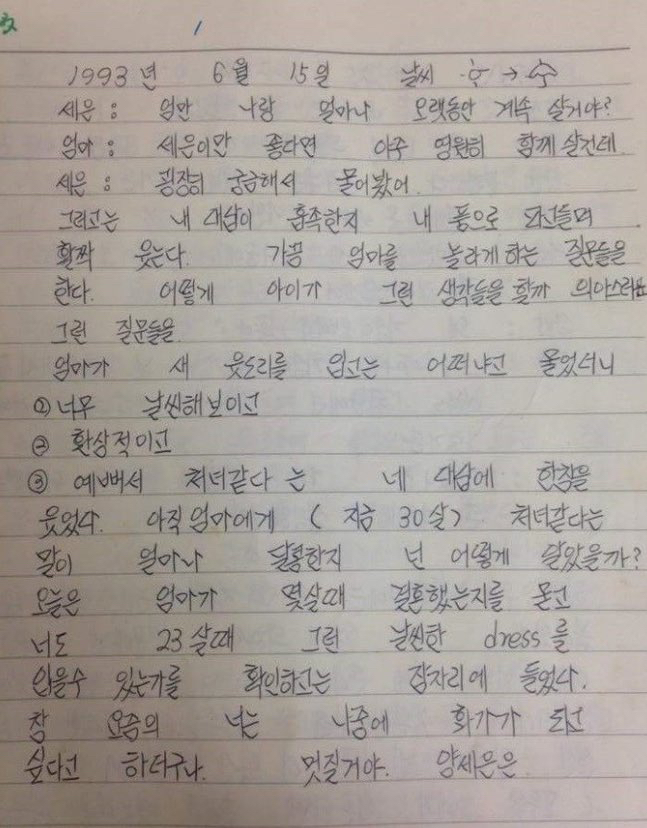 1993년 6월 15일 날씨 → 
세은 : 엄만 나랑 얼마나 오랫동안 계속 살거야?
엄마 : 세은이만 좋다면 아주 영원히 함께 살건데
세은 : 굉장히 궁금해서 물어봤어.
그러고는 내 대답이 흡족한지 내 품으로 파고들며
활짝 웃는다. 가끔 엄마를 놀라게 하는 질문들을
한다. 어떻게 아이가 그런 생각들을 할까 의아스러운
그런 질문들을.
엄마가 새 웃도리를 입고는 어떠냐고 물었더니
① 너무 날씬해보이고
② 환상적이고
③ 예뻐서 처녀같다 는 네 대답에 한참을
웃었다. 아직 엄마에게 (지금 30살) 처녀같다는
말이 얼마나 달콤한지 넌 어떻게 알았을까?
오늘은 엄마가 몇살때 결혼했는지를 묻고
너도 23살때 그런 날씬한 dress를
입을수 있는가를 확인하고는 잠자리에 들었다.
참 요즘의 너는 나중에 화가가 되고
싶다고 하더구나. 멋질거야. 양세은은